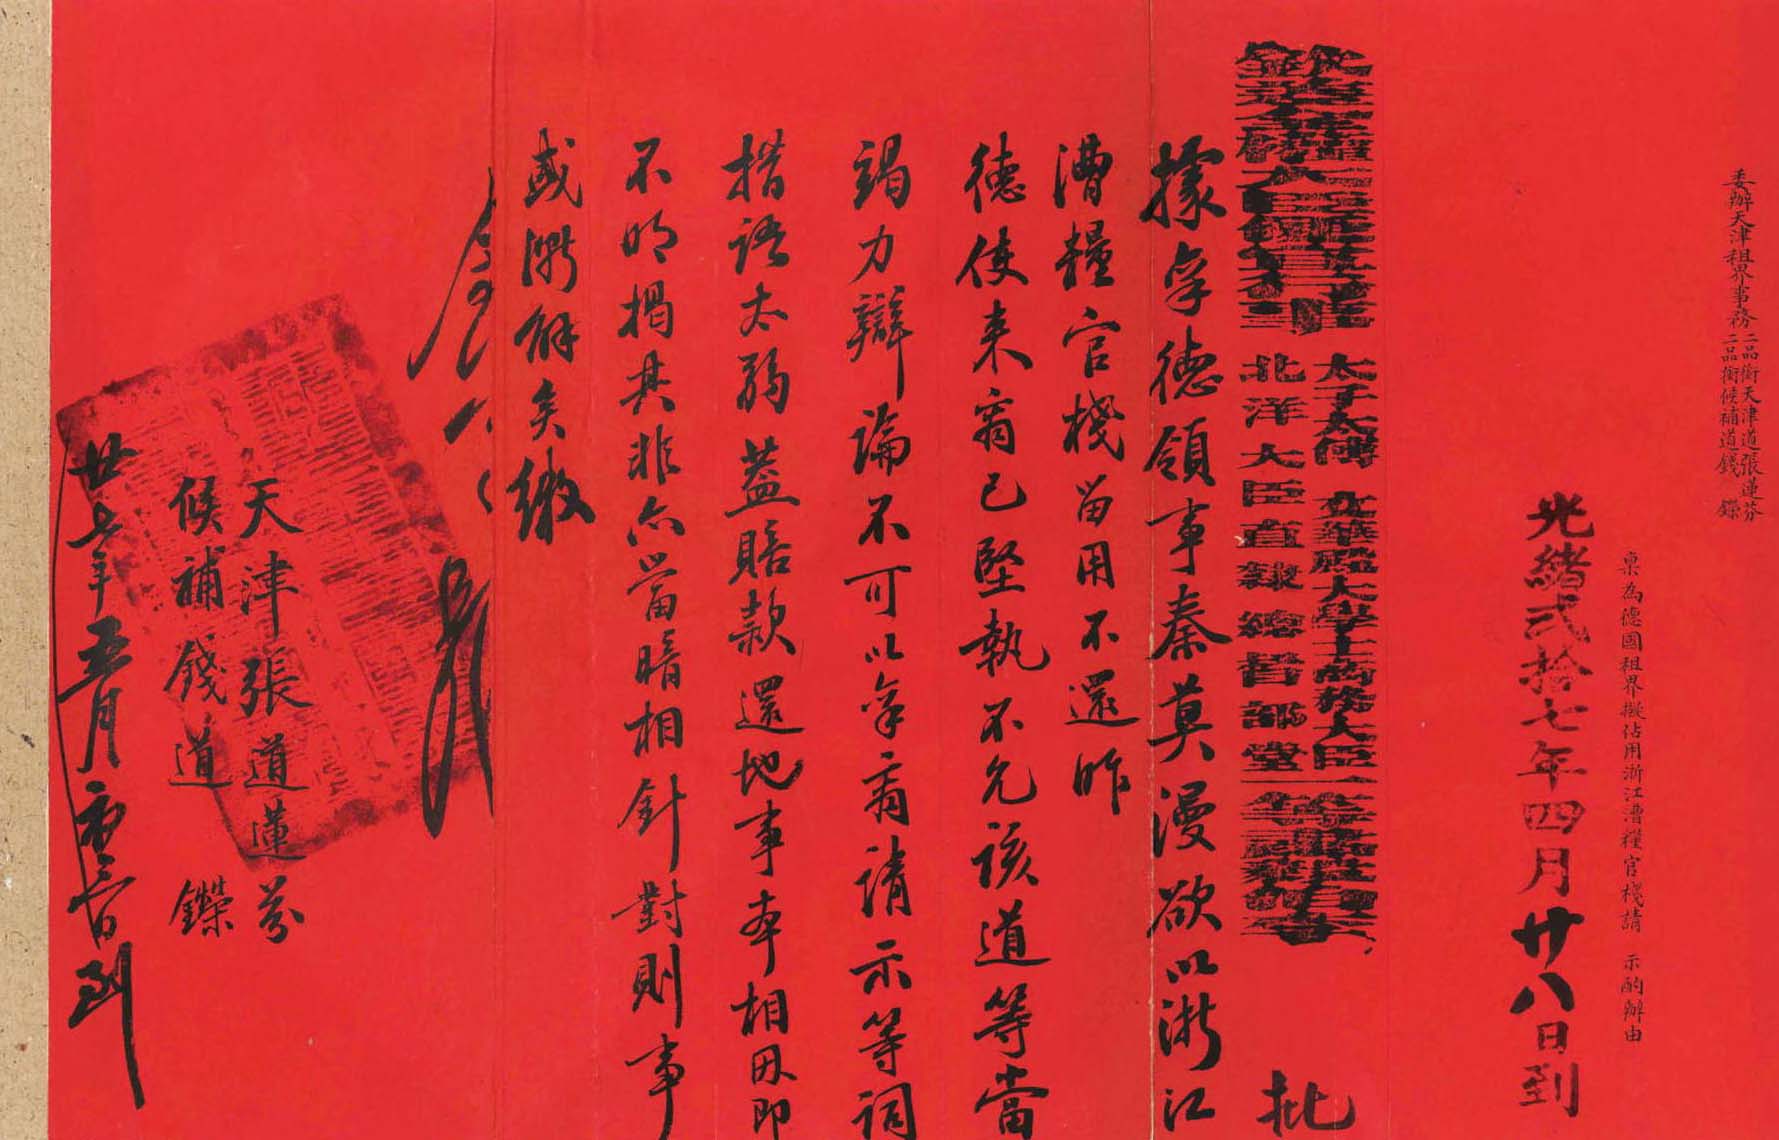 委辦天津租界事務
二品銜天津道張蓮芬
二品銜候補道錢 鑅
稟為德國租界擬佔用浙江漕糧官棧請 示酌辦由
光緒弍拾七年四月廿八日到
太子太傅 文華殿大學士商務大臣一等肅毅伯
北洋大臣直隸總督部堂
批
據稟德領事秦莫漫欲以浙江
漕糧官棧留用不還昨
德使來商已堅執不允該道等當
竭力辯論不可以稟商請示等詞
措語太弱蓋賠款還地事本相因即
不明揭其非亦當暗相針對則事
或漸解矣繳
天津張道蓮芬
候補錢道 鑅
廿七年五月日到